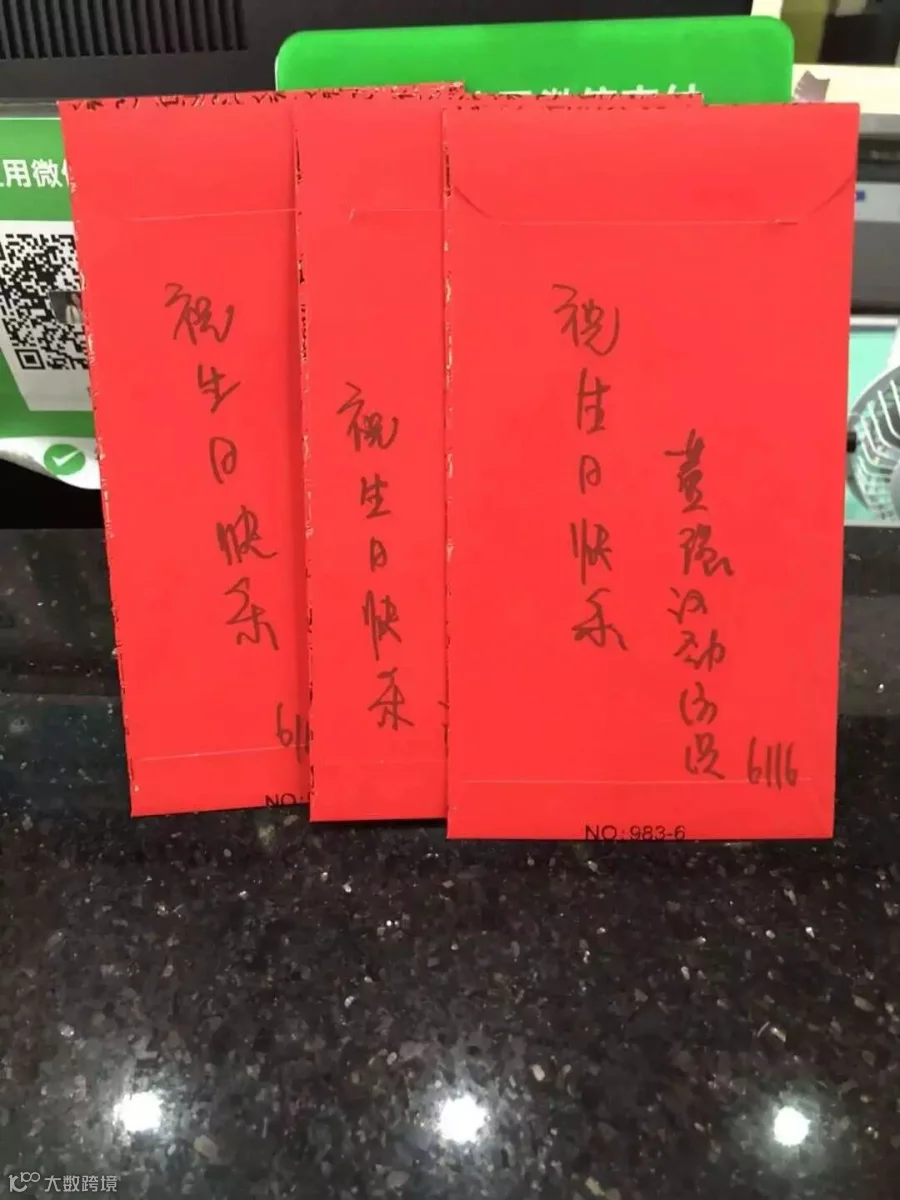 用微
祝生日快乐
61
NO:
祝生日快乐
祝生日快乐
6116
NO:983-6
大数跨境